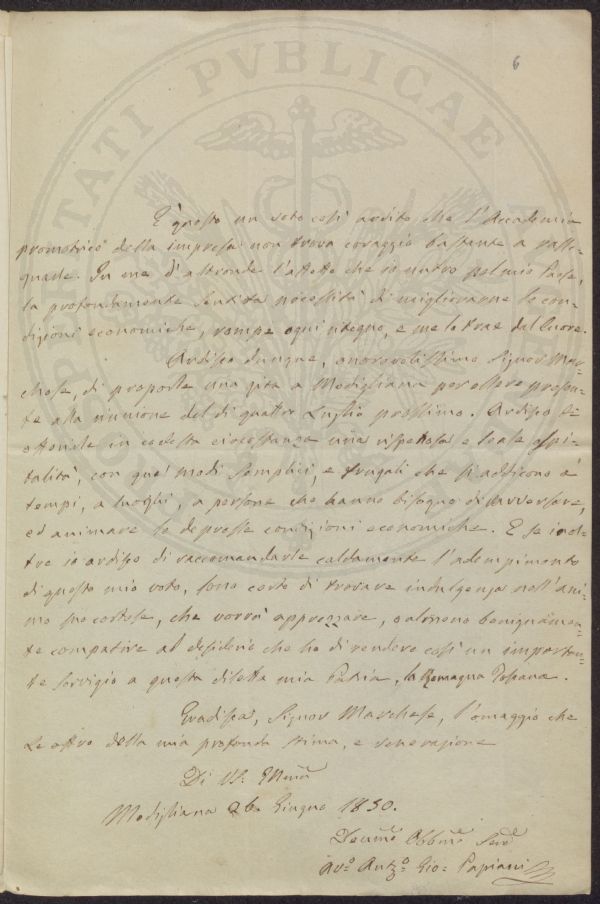 6
È questo un voto così ardito che l'Accademia
promotrice della impresa non trova coraggio bastante a rasse-
gnarle. In me d'altronde l'affetto che io nutro pel mio Paese,
la profondamente sentita necessità di migliorarne le con-
dizioni economiche, rompe ogni ritegno, e me lo trae dal Cuore.
Ardisco dunque, onorevolissimo Signor Mar-
chese, di proporle una gita a Modigliana per essere presen-
te alla riunione del dì quattro Luglio prossimo. Ardisco
in codesta circostanza una rispettosa e leale ospi-
talità, con que' modi semplici, e frugali che si addicono a'
tempi, a luoghi, a persone che hanno bisogno di
ed animare le depresse condizioni economiche. E se inol-
tre io ardisco di raccomandarle caldamente l'adempimento
di questo mio voto, sono certo di trovare indulgenza nell'ani-
mo suo cortese, che vorrà apprezzare, o almeno benignamen-
te compatire al desiderio che ho di rendere così un importan-
te servigio a questa diletta mia Patria, la Romagna Toscana.
Gradisca, Signor Marchese, l'omaggio che
Le offro della mia profonda stima, e venerazione
Di VS. Illma
Modigliana 26. Giugno 1850.
Devmo Obbmo Serv
Avo Gio: Papiani
PVBLICAE